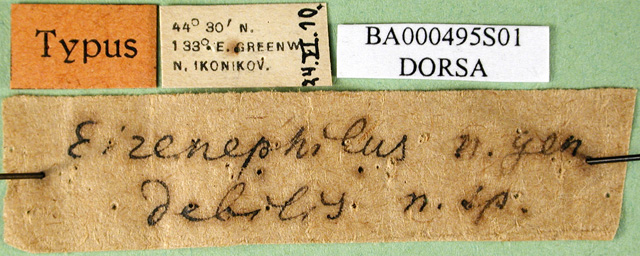 Typus
44° 30′ N.
133° E. GREENW
N. IKONIKOV.
24.VI.10.
BA000495S01
DORSA
Eirenephilus n. gen
debilis n. sp.